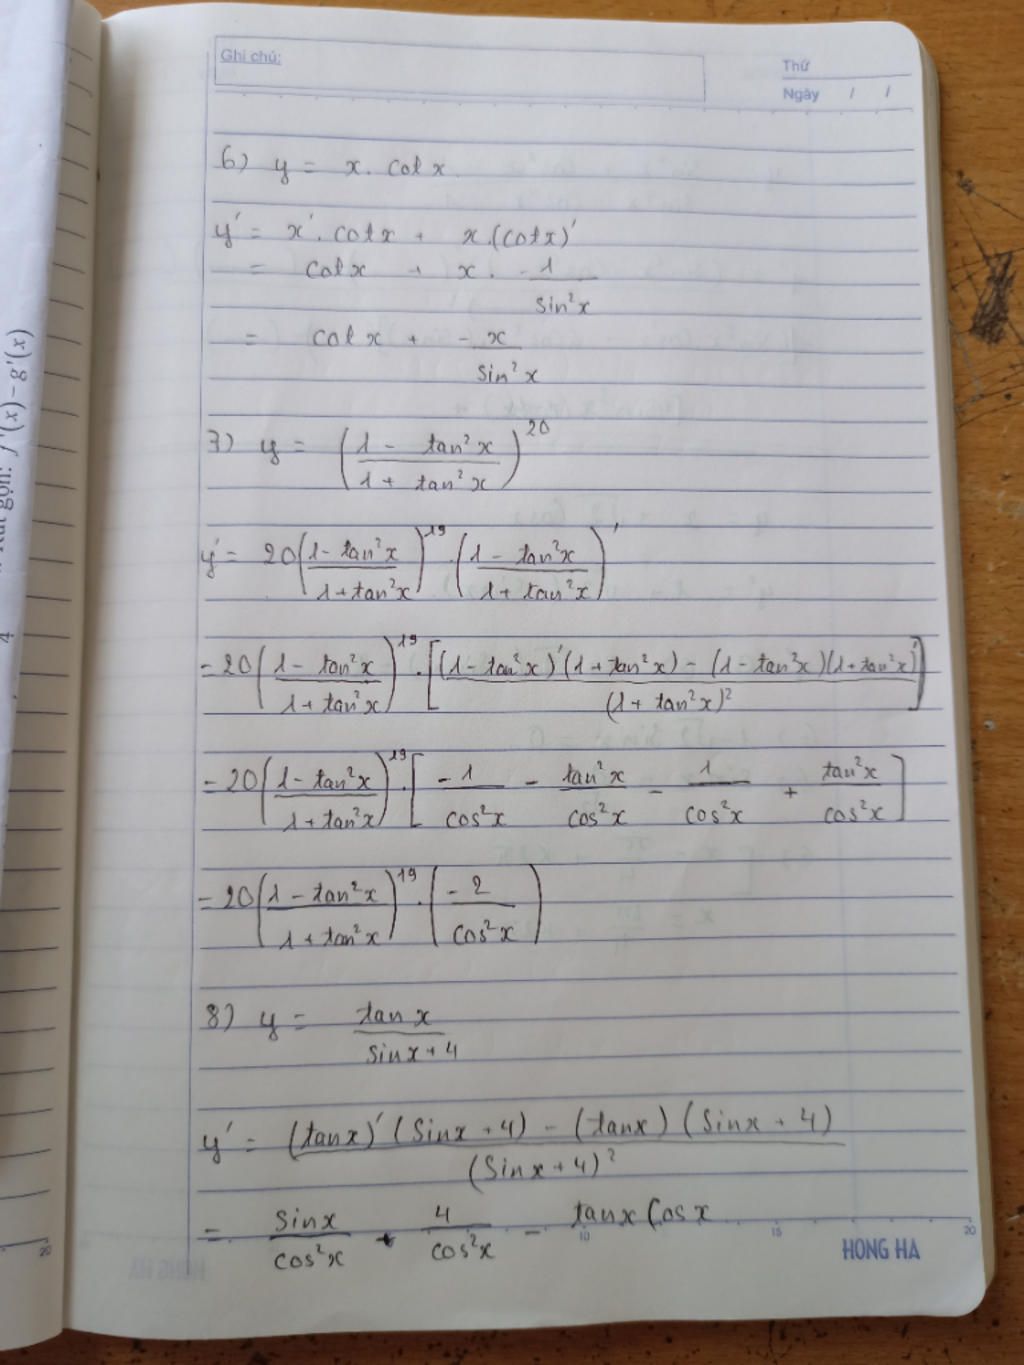 Ghi chú:
Thứ
Ngày / /
6) y = x. cotx
y' = x'. cotx + x.(cotx)'
= cotx + x. -1/sin²x
= cotx + -x/sin²x
7) y = ((1 - tan²x)/(1 + tan²x))^20
y' = 20((1 - tan²x)/(1 + tan²x))^19 . ((1 - tan²x)/(1 + tan²x))'
= 20((1 - tan²x)/(1 + tan²x))^19 . [((1 - tan²x)'(1 + tan²x) - (1 - tan²x)(1 + tan²x)')/(1 + tan²x)²]
= 20((1 - tan²x)/(1 + tan²x))^19 . [-1/cos²x - tan²x/cos²x - 1/cos²x + tan²x/cos²x]
= 20((1 - tan²x)/(1 + tan²x))^19 . (-2/cos²x)
8) y = tanx/(sinx + 4)
y' = ((tanx)'(Sinx + 4) - (tanx)(Sinx + 4))/(Sinx + 4)²
= sinx/cos²x + 4/cos²x - tanx Cosx
10 15 20
HONG HA
f'(x) – g'(x)
gọn:
4
20